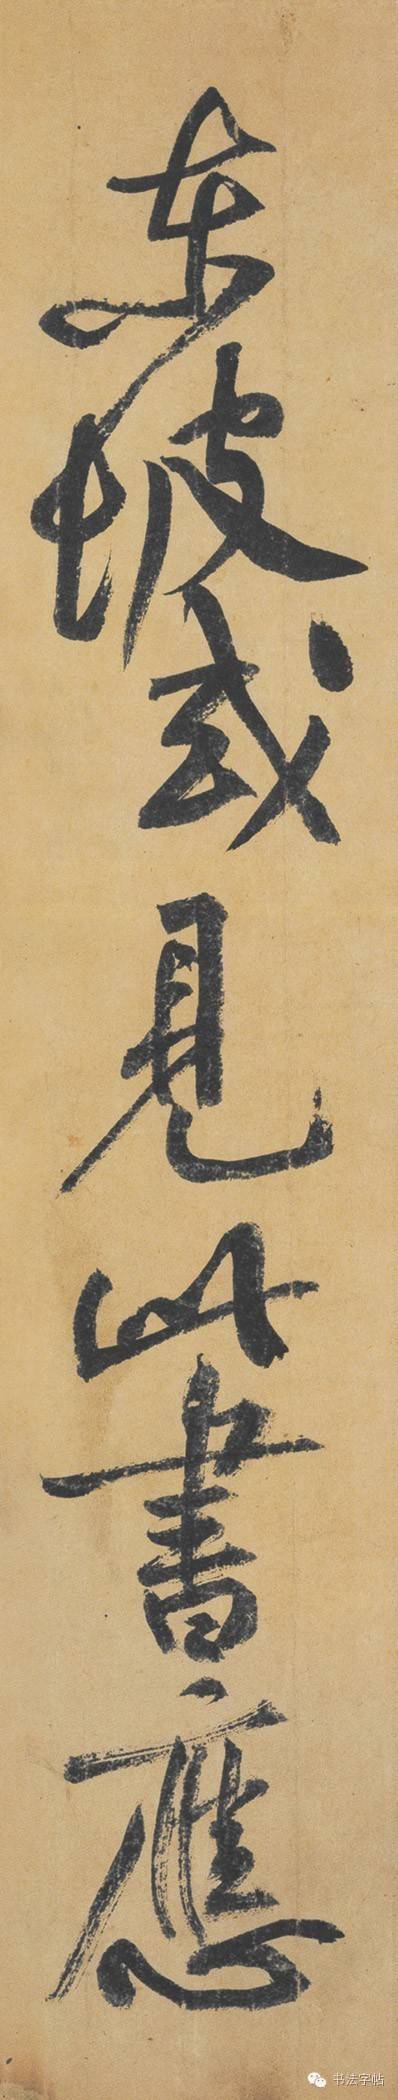 东坡或見此書應
书法字帖